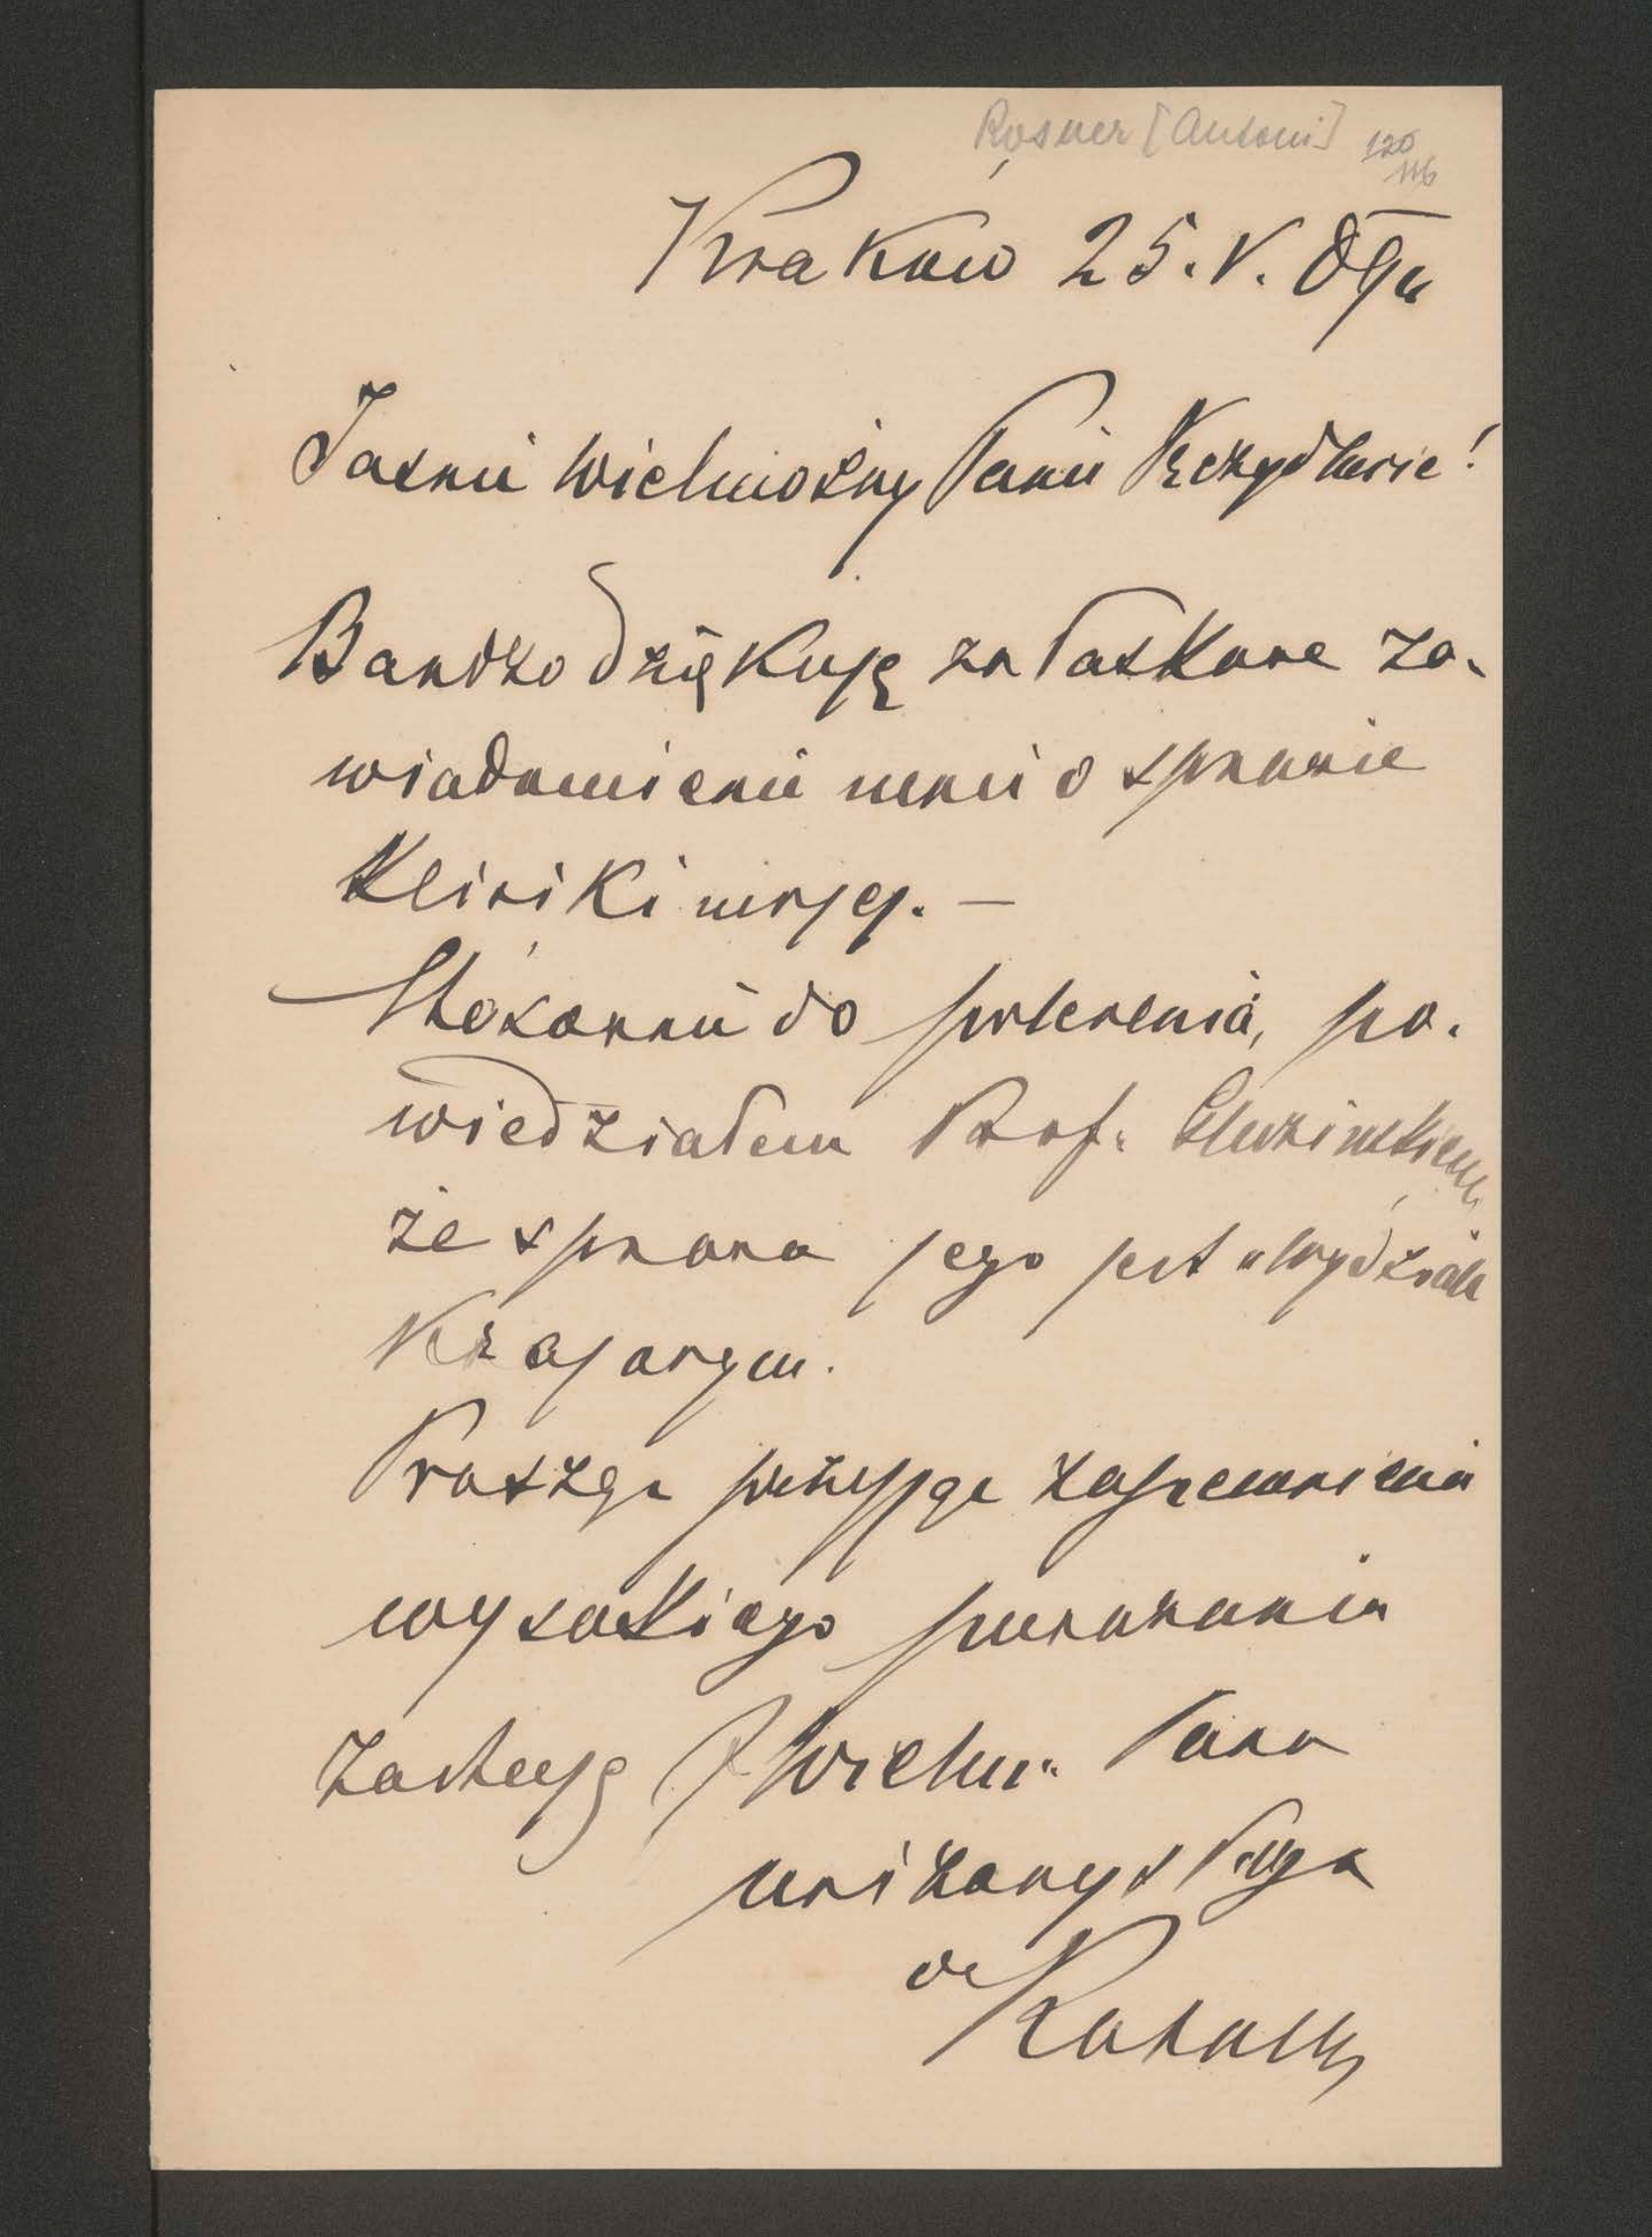 Rosner [Antoni] 120
116
Kraków 25. V. 89 u
Jaśnie Wielmożny Panie Rezydencie!
Bardzo dziękuję za łaskawe za-
wiadomienie mnie o sprawie
kliniki mojej. –
Stosownie do polecenia, po-
wiedziałem Prof. Gluzińskiemu
że sprawa jego jest w Wydziale
Krajowym.
Proszę przyjąć zapewnienia
wysokiego poważania
Zostaję J Wielm. Pana
uniżonym sługą
dr Rosner